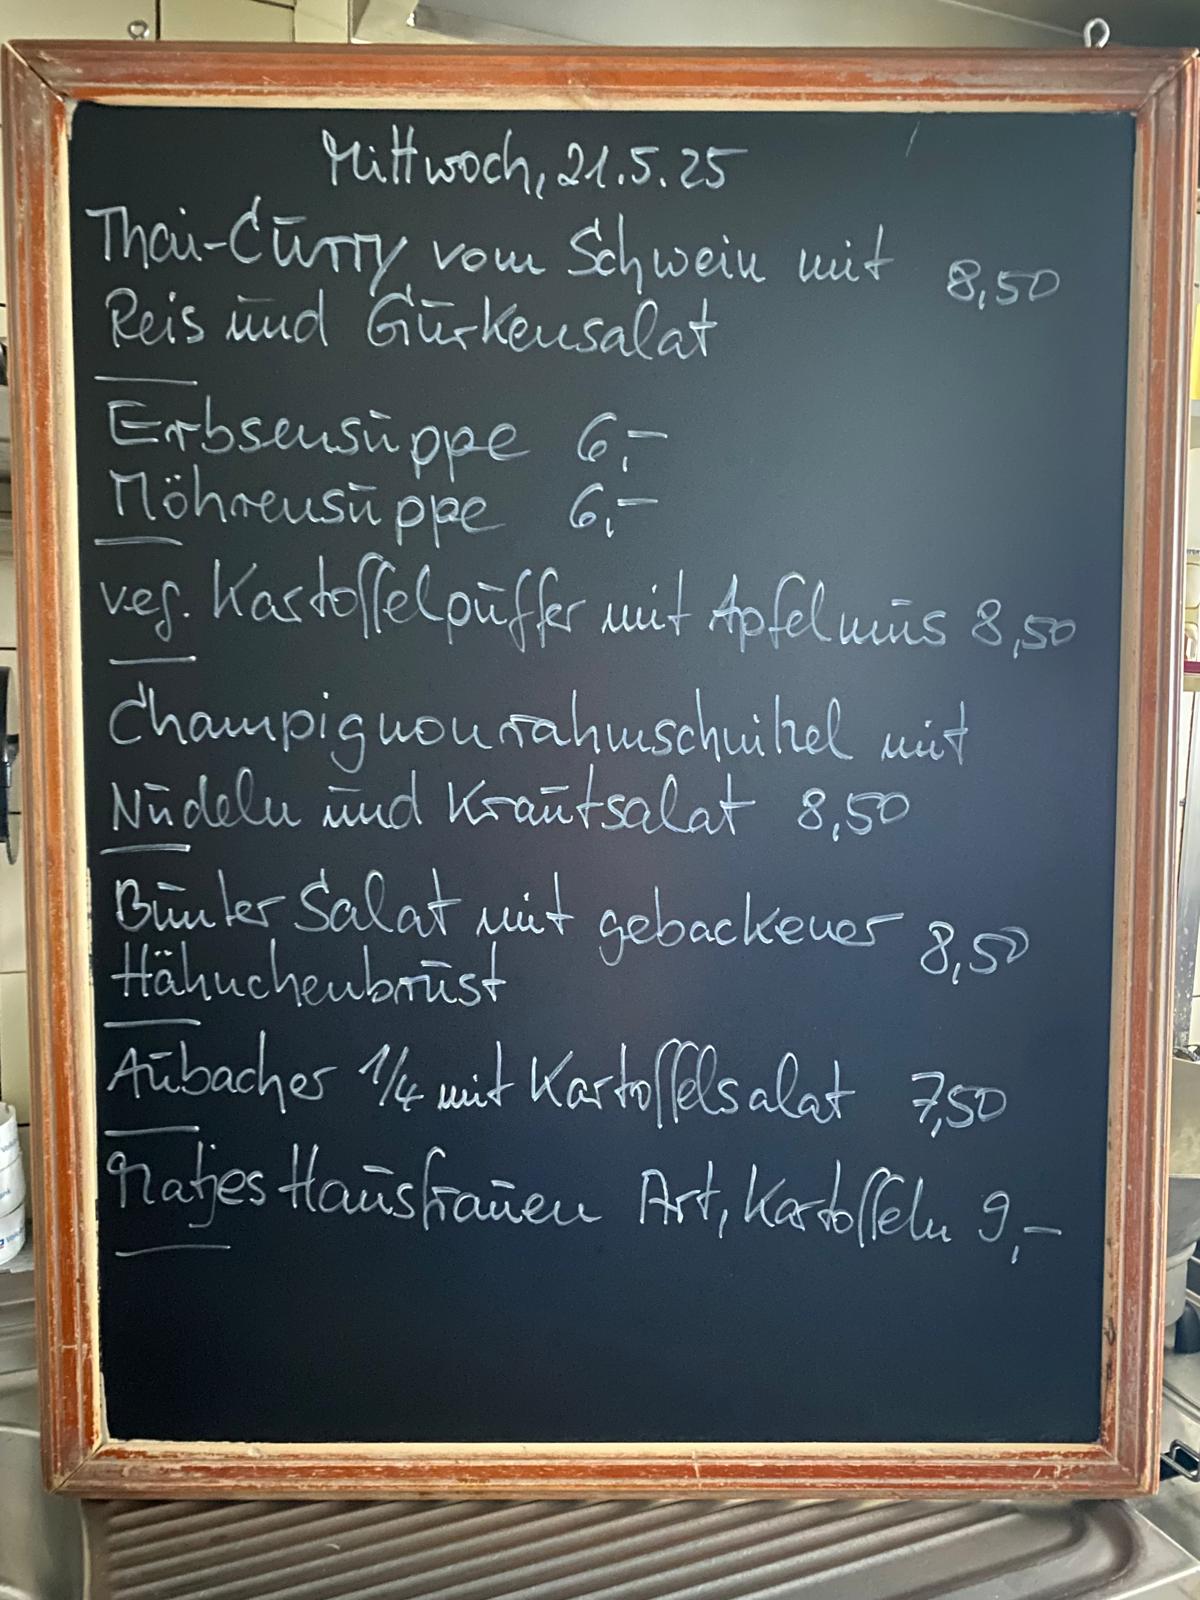 Mittwoch, 21.5.25
Thai-Curry vom Schwein mit 8,50
Reis und Gurkensalat
Erbsensuppe 6,-
Möhrensuppe 6,-
veg. Kartoffelpuffer mit Apfelmus 8,50
Champignonrahmschnitzel mit
Nudeln und Krautsalat 8,50
Bunter Salat mit gebackener 8,50
Hähnchenbrust
Aubacher 1/4 mit Kartoffelsalat 7,50
Matjes Hausfrauen Art, Kartoffeln 9,-